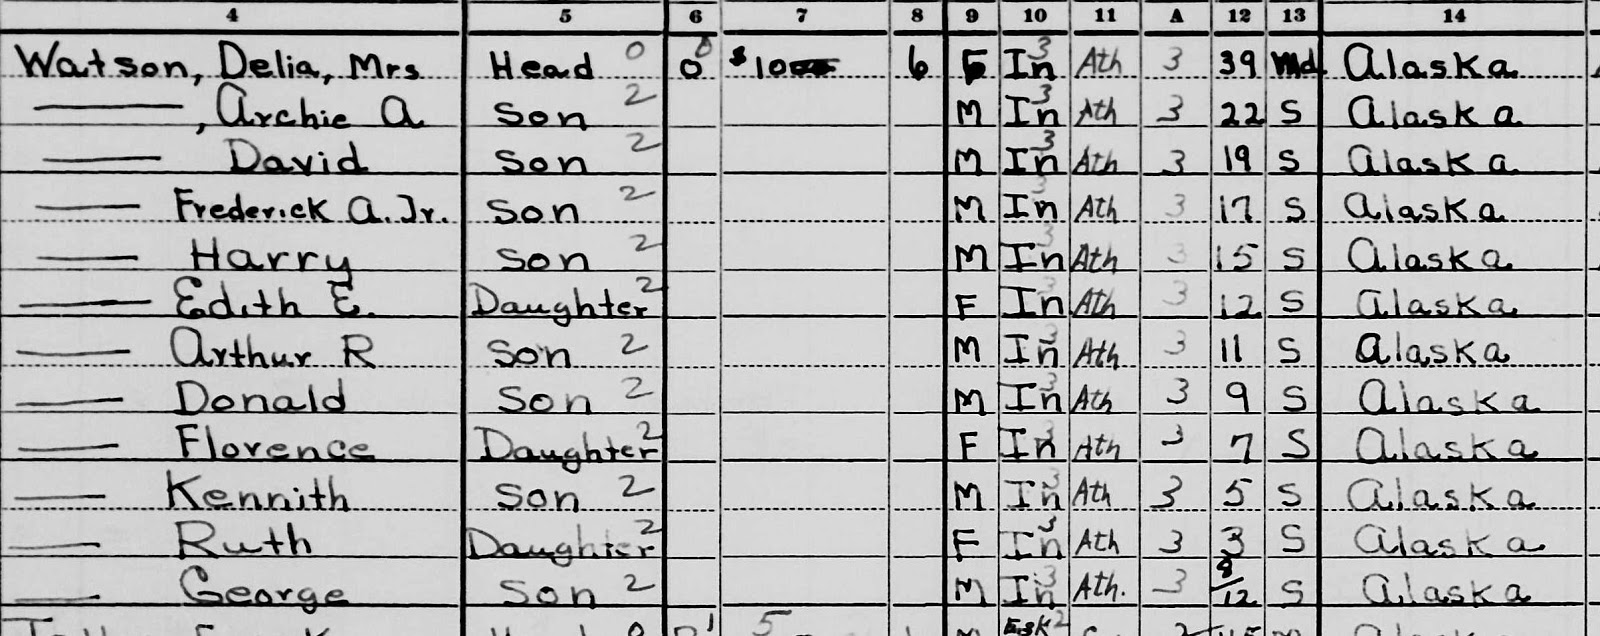 4 5 6 7 8 9 10 11 A 12 13 14
Watson, Delia, Mrs Head 0 0 0 $10 6 F In 3 Ath 3 39 Md Alaska
, Archie A Son 2 M In 3 Ath 3 22 S Alaska
David Son 2 M In 3 Ath 3 19 S Alaska
Frederick A. Jr. Son 2 M In 3 Ath 3 17 S Alaska
Harry Son 2 M In 3 Ath 3 15 S Alaska
Edith E. Daughter 2 F In 3 Ath 3 12 S Alaska
Arthur R Son 2 M In 3 Ath 3 11 S Alaska
Donald Son 2 M In 3 Ath 3 9 S Alaska
Florence Daughter 2 F In 3 Ath 3 7 S Alaska
Kennith Son 2 M In 3 Ath 3 5 S Alaska
Ruth Daughter 2 F In 3 Ath 3 3 S Alaska
George Son 2 M In 3 Ath. 3 8/12 S Alaska
1 5 Esk 2